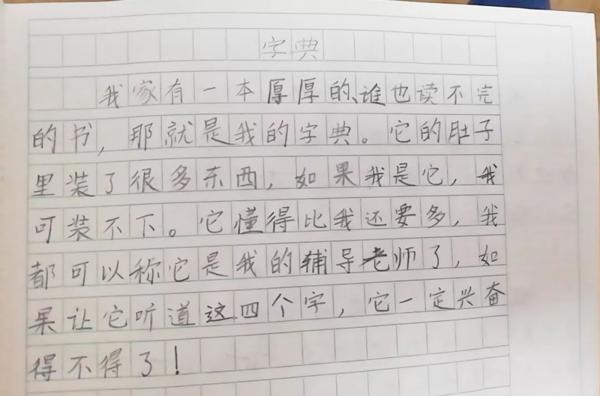 字典
我家有一本厚厚的、谁也读不完
的书，那就是我的字典。它的肚子
里装了很多东西，如果我是它，我
可装不下。它懂得比我还要多，我
都可以称它是我的辅导老师了，如
果让它听道这四个字，它一定兴奋
得不得了！